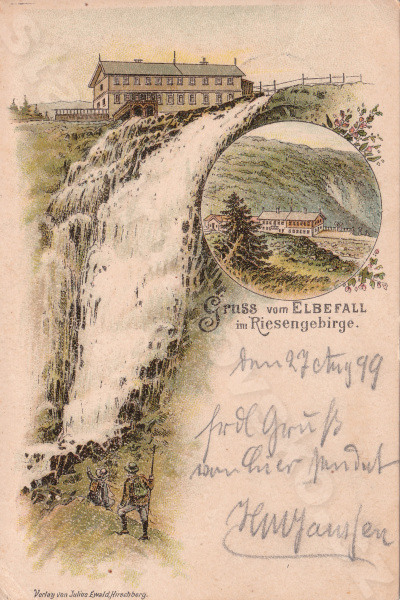 Gruss vom ELBEFALL
im Riesengebirge.
den 27 Aug 99
frdl Gruß
von hier sendet
Verlag von Julius Ewald, Hirschberg.